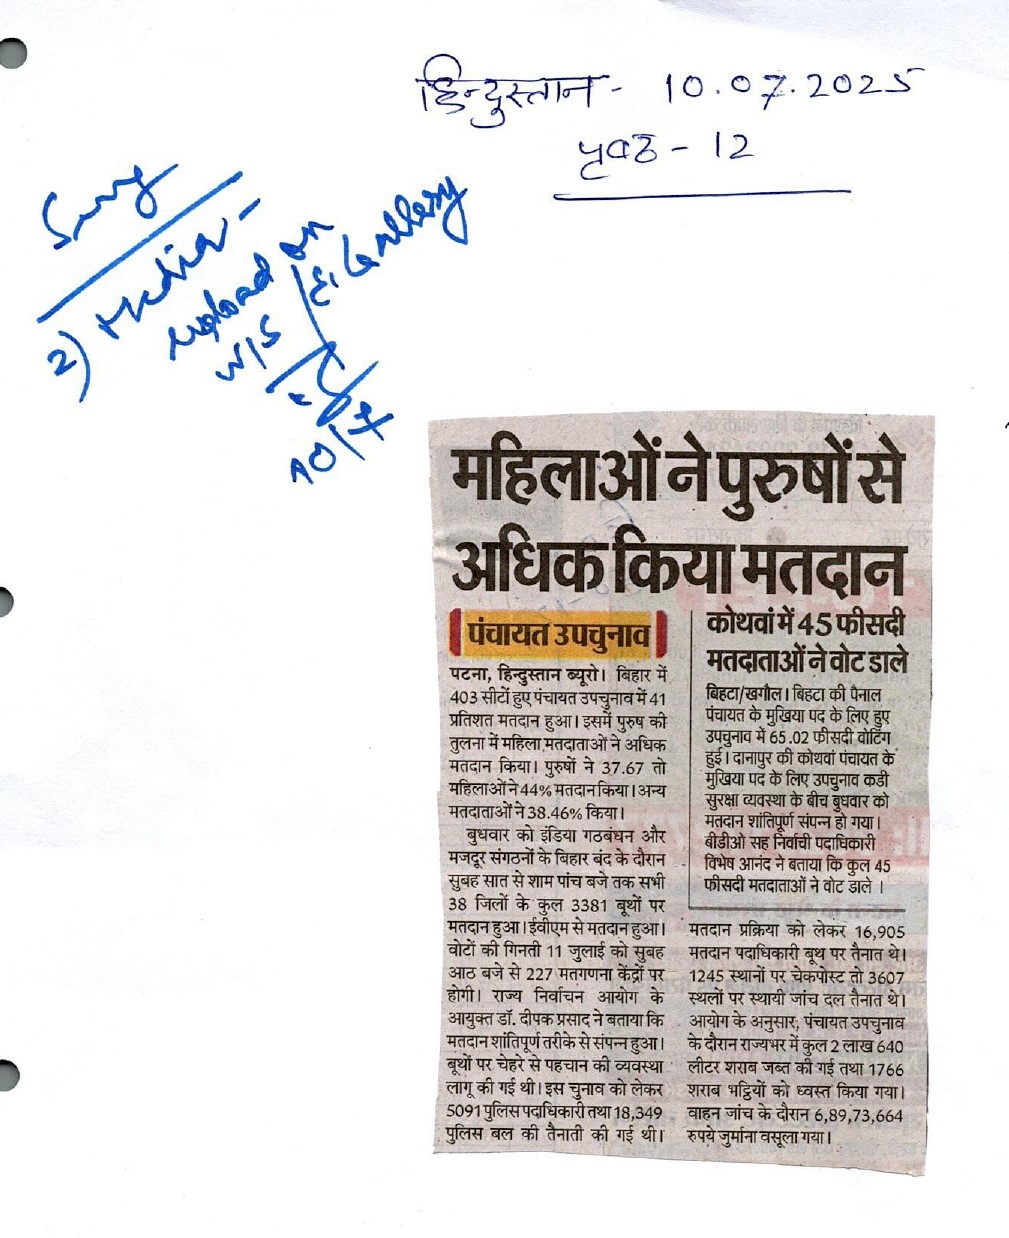 हिन्दुस्तान - 10.07.2025
पृष्ठ - 12
2) Media -
upload on
W/S / E. Gallery
10/7
महिलाओं ने पुरुषों से
अधिक किया मतदान
पंचायत उपचुनाव
पटना, हिन्दुस्तान ब्यूरो। बिहार में
403 सीटों हुए पंचायत उपचुनाव में 41
प्रतिशत मतदान हुआ। इसमें पुरुष की
तुलना में महिला मतदाताओं ने अधिक
मतदान किया। पुरुषों ने 37.67 तो
महिलाओं ने 44% मतदान किया। अन्य
मतदाताओं ने 38.46% किया।
बुधवार को इंडिया गठबंधन और
मजदूर संगठनों के बिहार बंद के दौरान
सुबह सात से शाम पांच बजे तक सभी
38 जिलों के कुल 3381 बूथों पर
मतदान हुआ। ईवीएम से मतदान हुआ।
वोटों की गिनती 11 जुलाई को सुबह
आठ बजे से 227 मतगणना केंद्रों पर
होगी। राज्य निर्वाचन आयोग के
आयुक्त डॉ. दीपक प्रसाद ने बताया कि
मतदान शांतिपूर्ण तरीके से संपन्न हुआ।
बूथों पर चेहरे से पहचान की व्यवस्था
लागू की गई थी। इस चुनाव को लेकर
5091 पुलिस पदाधिकारी तथा 18,349
पुलिस बल की तैनाती की गई थी।
कोथवां में 45 फीसदी
मतदाताओं ने वोट डाले
बिहटा/खगौल। बिहटा की पैनाल
पंचायत के मुखिया पद के लिए हुए
उपचुनाव में 65.02 फीसदी वोटिंग
हुई। दानापुर की कोथवां पंचायत के
मुखिया पद के लिए उपचुनाव कड़ी
सुरक्षा व्यवस्था के बीच बुधवार को
मतदान शांतिपूर्ण संपन्न हो गया।
बीडीओ सह निर्वाची पदाधिकारी
विभेष आनंद ने बताया कि कुल 45
फीसदी मतदाताओं ने वोट डाले ।
मतदान प्रक्रिया को लेकर 16,905
मतदान पदाधिकारी बूथ पर तैनात थे।
1245 स्थानों पर चेकपोस्ट तो 3607
स्थलों पर स्थायी जांच दल तैनात थे।
आयोग के अनुसार, पंचायत उपचुनाव
के दौरान राज्यभर में कुल 2 लाख 640
लीटर शराब जब्त की गई तथा 1766
शराब भट्ठियों को ध्वस्त किया गया।
वाहन जांच के दौरान 6,89,73,664
रुपये जुर्माना वसूला गया।